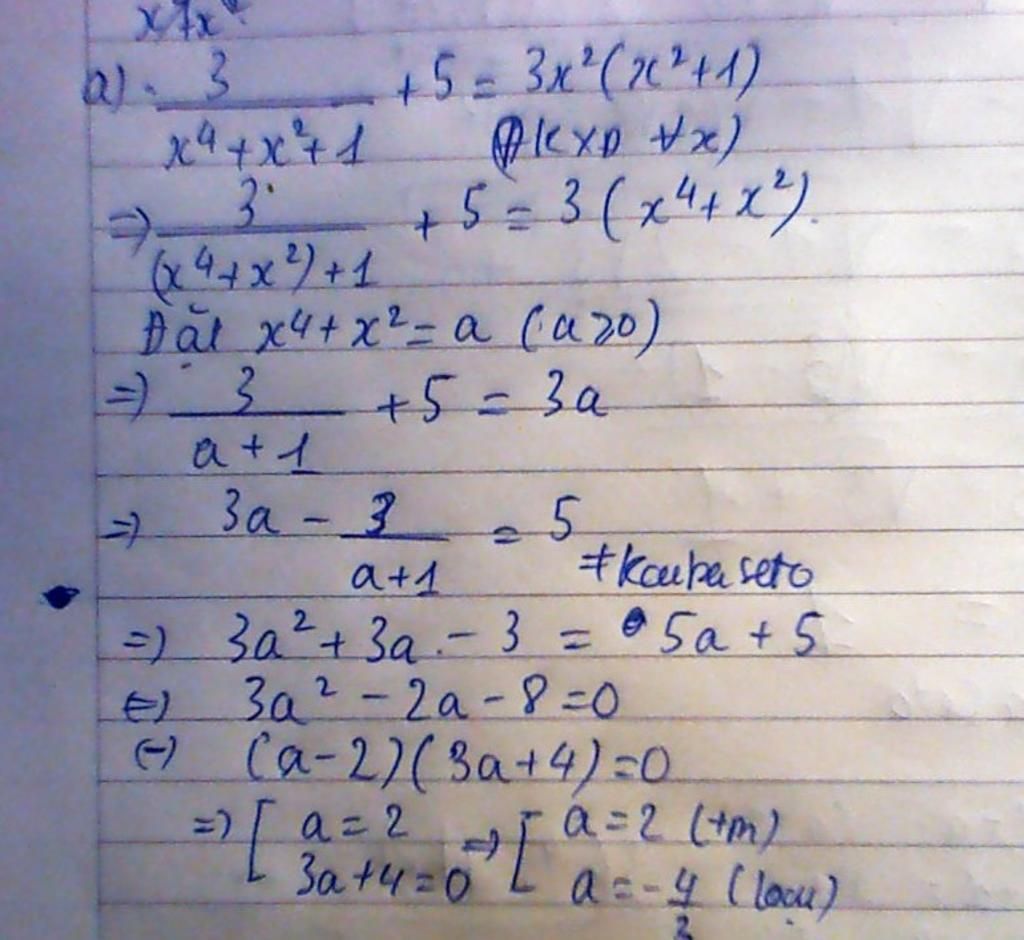 a) 3/(x⁴+x²+1) + 5 = 3x²(x²+1)
(ĐKXĐ ∀x)
=> 3/((x⁴+x²)+1) + 5 = 3(x⁴+x²).
Đặt x⁴+x² = a (a≥0)
=> 3/(a+1) + 5 = 3a
=> 3a - 3/(a+1) = 5
=> 3a² + 3a - 3 = 5a + 5
<=> 3a² - 2a - 8 = 0
(-) (a-2)(3a+4) = 0
=> [ a = 2 => [ a = 2 (tm)
3a+4 = 0 a = -4/3 (loại)